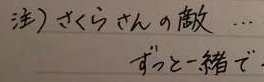 注)さくらさんの敵…
ずっと一緒で